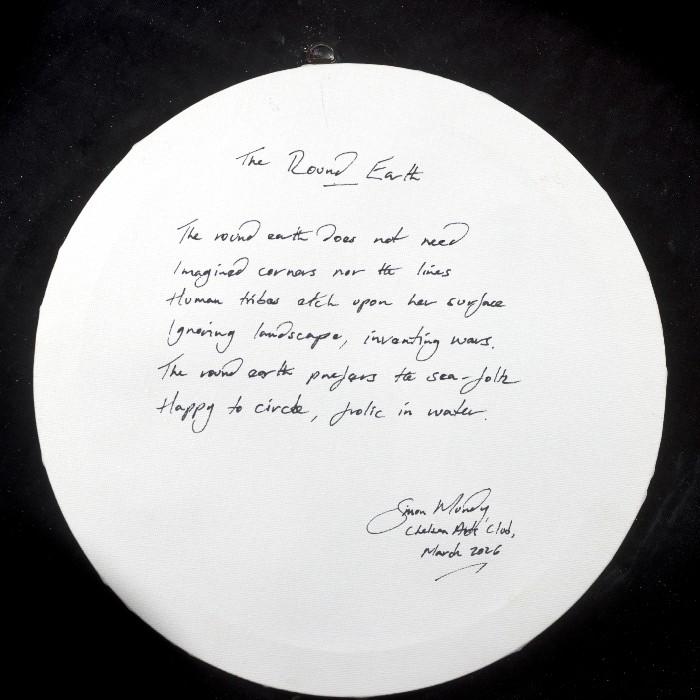 The Round Earth
The round earth does not need
Imagined corners nor the lines
Human tribes etch upon her surface
Ignoring landscape, inventing wars.
The round earth prefers the sea-folk
Happy to circle, frolic in water.
Simon Mundy
Chelsea Arts Club,
March 2026